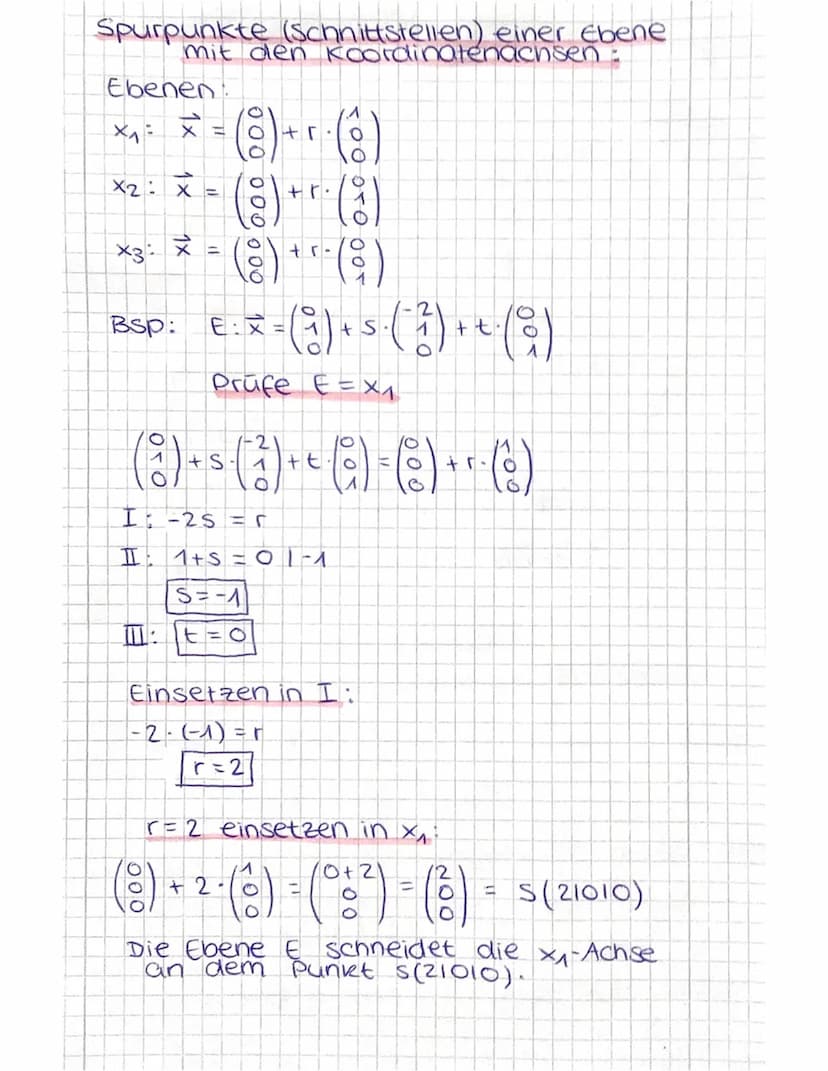 Spurpunkte (Schnittstellen) einer Ebene
mit den Koordinatenachsen:
Ebenen:
x₁: x⃗ = (0 0 0) + r · (1 0 0)
x₂: x⃗ = (0 0 0) + r · (0 1 0)
x₃: x⃗ = (0 0 0) + r · (0 0 1)
Bsp: E: x⃗ = (0 1 0) + s · (-2 1 0) + t · (0 0 1)
Prüfe E = x₁
(0 1 0) + s · (-2 1 0) + t · (0 0 1) = (0 0 0) + r · (1 0 0)
I: -2s = r
II: 1+s = 0 | -1
s = -1
III: t = 0
Einsetzen in I:
-2 · (-1) = r
r = 2
r = 2 einsetzen in x₁:
(0 0 0) + 2 · (1 0 0) = (0+2 0 0) = (2 0 0) = S(2|0|0)
Die Ebene E schneidet die x₁-Achse
an dem Punkt S(2|0|0).